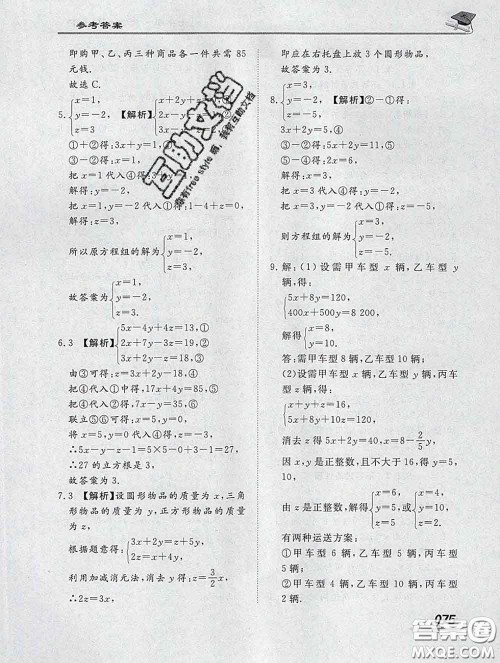 参考答案
即购甲、乙、丙三种商品各一件共需 85
元钱.
故选 C.
5. {x=1, y=-2, z=3 【解析】
①+②得:3x+y=1,④
把 x=1 代入④得:
解得:y=-2,
把 x=1,y=-2 代入①得:1-4+z=0,
解得:z=3,
所以原方程组的解为{x=1, y=-2, z=3,
故答案为{x=1, y=-2, z=3.
6.3 【解析】{5x-4y+4z=13,① 2x+7y-3z=19,② 3x+2y-z=18,③
由③可得:z=3x+2y-18,④
把④代入①中得,17x+4y=85,⑤
把④代入②得,7x-y=35,⑥
联立⑤⑥可得:x=5,y=0
将 x=5,y=0 代入④得:z=-3,
∴5x-9y-z+2=25+3-1=27
∴27 的立方根是 3.
故答案为 3.
7.3 【解析】设圆形物品的质量为 x,三角
形物品的质量为 y,正方形物品的质量
为 z,
根据题意得:{3x+2y=z, x+y=2z,
利用加减消元法,消去 y 得:z=3/2 x
即应在右托盘上放 3 个圆形物品,
故答案为 3.
8. {x=1, y=-2, z=3 【解析】②-①得:
3x+2y=5,④
5x-2y=11,⑤
⑤-④得:
3x+2y=5,④
把 x=2 代入④得:
解得:y=-2,
把 x=1,y=-2 代入①得:
解得:z=3,
则方程组的解为{x=1, y=-2, z=3.
9. 解:(1)设需甲车型 x 辆,乙车型 y
辆,得:
{5x+8y=120, 400x+500y=8200,
解得{x=8, y=10.
答:需甲车型 8 辆,乙车型 10 辆;
(2)设需甲车型 x 辆,乙车型 y 辆,丙
车型 z 辆,得:
{x+y+z=16, 5x+8y+10z=120,
消去 z 得 5x+2y=40,x=8-2/5 y,
因 x,y 是正整数,且不大于 16,得 y=
5,10,
由 z 是正整数,解得{x=6, y=5, z=5, {x=4, y=10, z=2,
有两种运送方案:
①甲车型 6 辆,乙车型 5 辆,丙车型 5
辆;
②甲车型 4 辆,乙车型 10 辆,丙车型
2 辆.
075
互助文档
答案圈
MXQE.COM